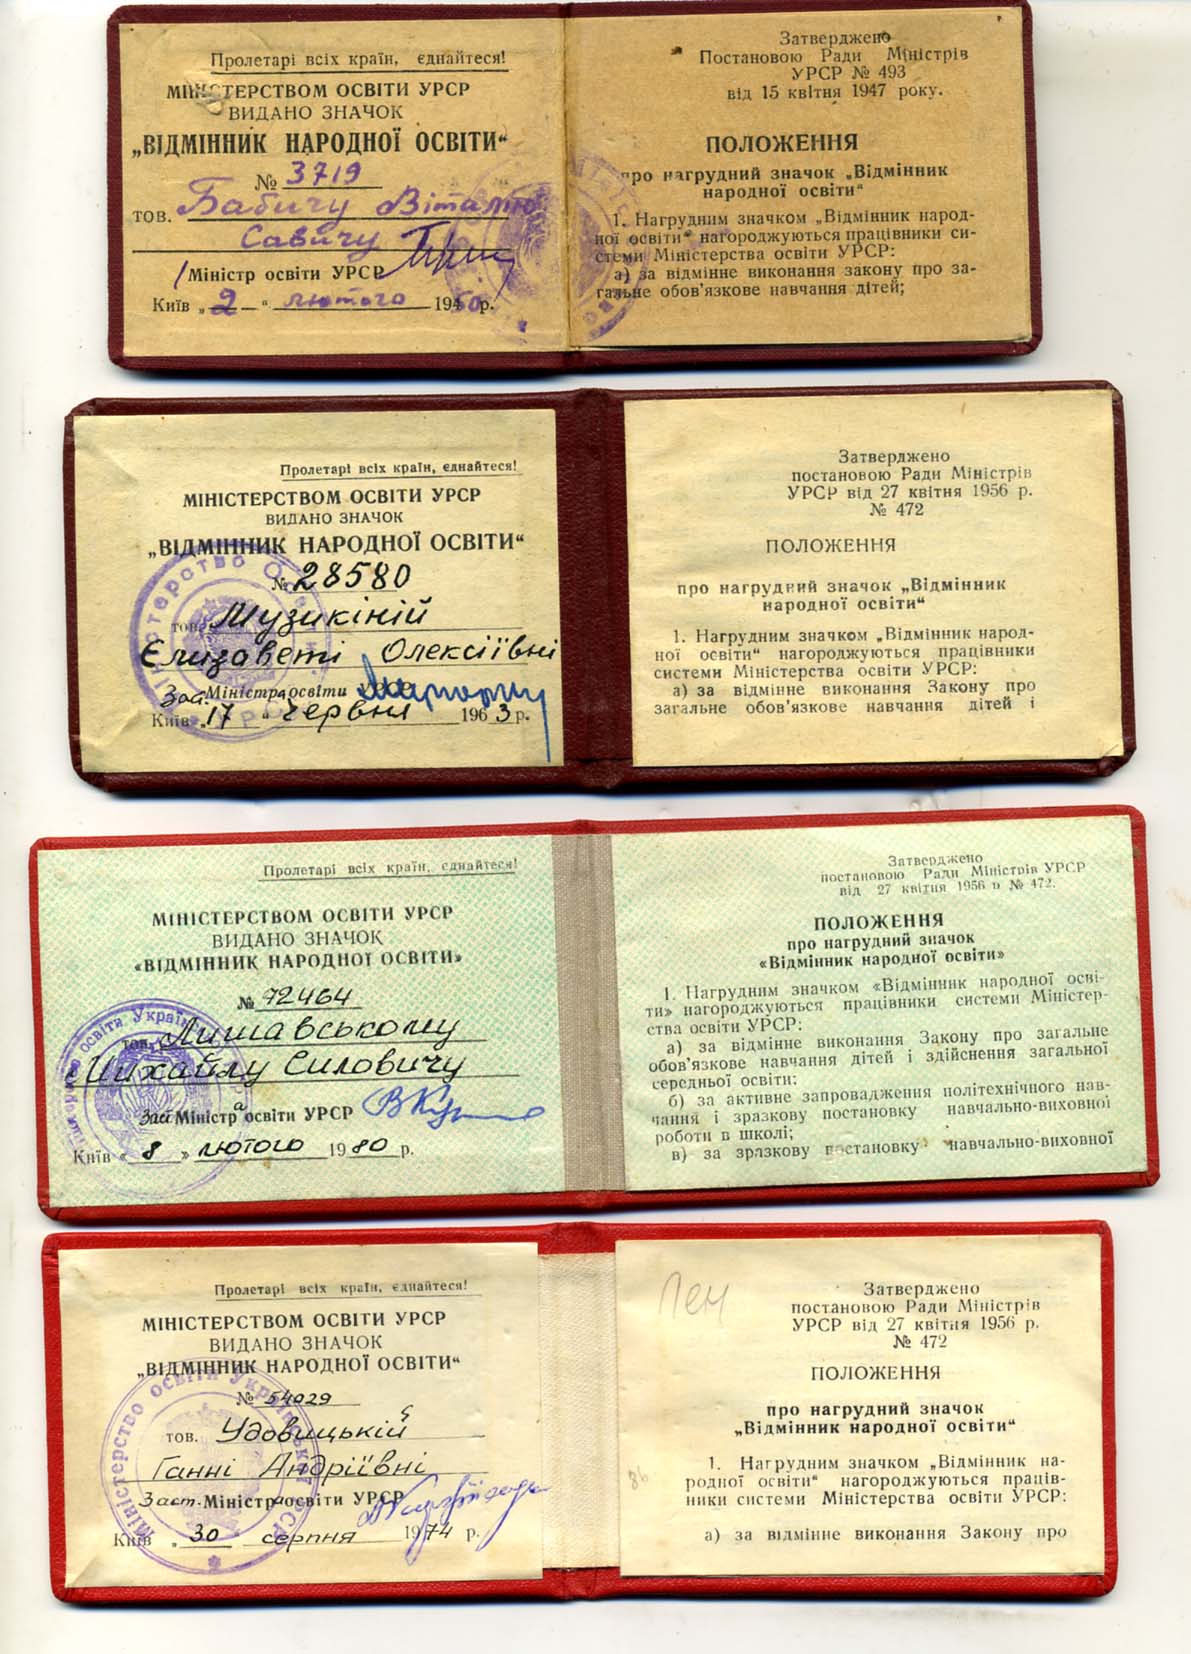 Пролетарі всіх країн, єднайтеся!
МІНІСТЕРСТВОМ ОСВІТИ УРСР
ВИДАНО ЗНАЧОК
„ВІДМІННИК НАРОДНОЇ ОСВІТИ“
№ 3719
тов. Бабичу Віталію
Савичу
Міністр освіти УРСР
Київ „2“ лютого 1950р.
Затверджено
Постановою Ради Міністрів
УРСР № 493
від 15 квітня 1947 року.
ПОЛОЖЕННЯ
про нагрудний значок „Відмінник
народної освіти“
1. Нагрудним значком „Відмінник народ-
ної освіти“ нагороджуються працівники си-
стеми Міністерства освіти УРСР:
а) за відмінне виконання закону про за-
гальне обов'язкове навчання дітей;
Пролетарі всіх країн, єднайтеся!
МІНІСТЕРСТВОМ ОСВІТИ УРСР
ВИДАНО ЗНАЧОК
„ВІДМІННИК НАРОДНОЇ ОСВІТИ“
№ 28580
тов. Музикіній
Єлизаветі Олексіївні
Заст. Міністра освіти УРСР
Київ „17“ червня 1963 р.
Затверджено
постановою Ради Міністрів
УРСР від 27 квітня 1956 р.
№ 472
ПОЛОЖЕННЯ
про нагрудний значок „Відмінник
народної освіти“
1. Нагрудним значком „Відмінник народ-
ної освіти“ нагороджуються працівники
системи Міністерства освіти УРСР:
а) за відмінне виконання Закону про
загальне обов'язкове навчання дітей і
Пролетарі всіх країн, єднайтеся!
МІНІСТЕРСТВОМ ОСВІТИ УРСР
ВИДАНО ЗНАЧОК
«ВІДМІННИК НАРОДНОЇ ОСВІТИ»
№ 72464
тов. Лишавському
Михайлу Силовичу
Заст Міністра освіти УРСР
Київ «8» лютого 1980 р.
Затверджено
постановою Ради Міністрів УРСР
від 27 квітня 1956 р № 472.
ПОЛОЖЕННЯ
про нагрудний значок
«Відмінник народної освіти»
1. Нагрудним значком «Відмінник народної осві-
ти» нагороджуються працівники системи Міністер-
ства освіти УРСР:
а) за відмінне виконання Закону про загальне
обов'язкове навчання дітей і здійснення загальної
середньої освіти;
б) за активне запровадження політехнічного нав-
чання і зразкову постановку навчально-виховної
роботи в школі;
в) за зразкову постановку навчально-виховної
Пролетарі всіх країн, єднайтеся!
МІНІСТЕРСТВОМ ОСВІТИ УРСР
ВИДАНО ЗНАЧОК
„ВІДМІННИК НАРОДНОЇ ОСВІТИ“
№ 54029
тов. Удовицькій
Ганні Андріївні
Заст. Міністра освіти УРСР
Київ „30 серпня 1974 р.
Лен
Затверджено
постановою Ради Міністрів
УРСР від 27 квітня 1956 р.
№ 472
ПОЛОЖЕННЯ
про нагрудний значок
„Відмінник народної освіти“
1. Нагрудним значком „Відмінник на-
родної освіти“ нагороджуються праців-
ники системи Міністерства освіти УРСР:
а) за відмінне виконання Закону про